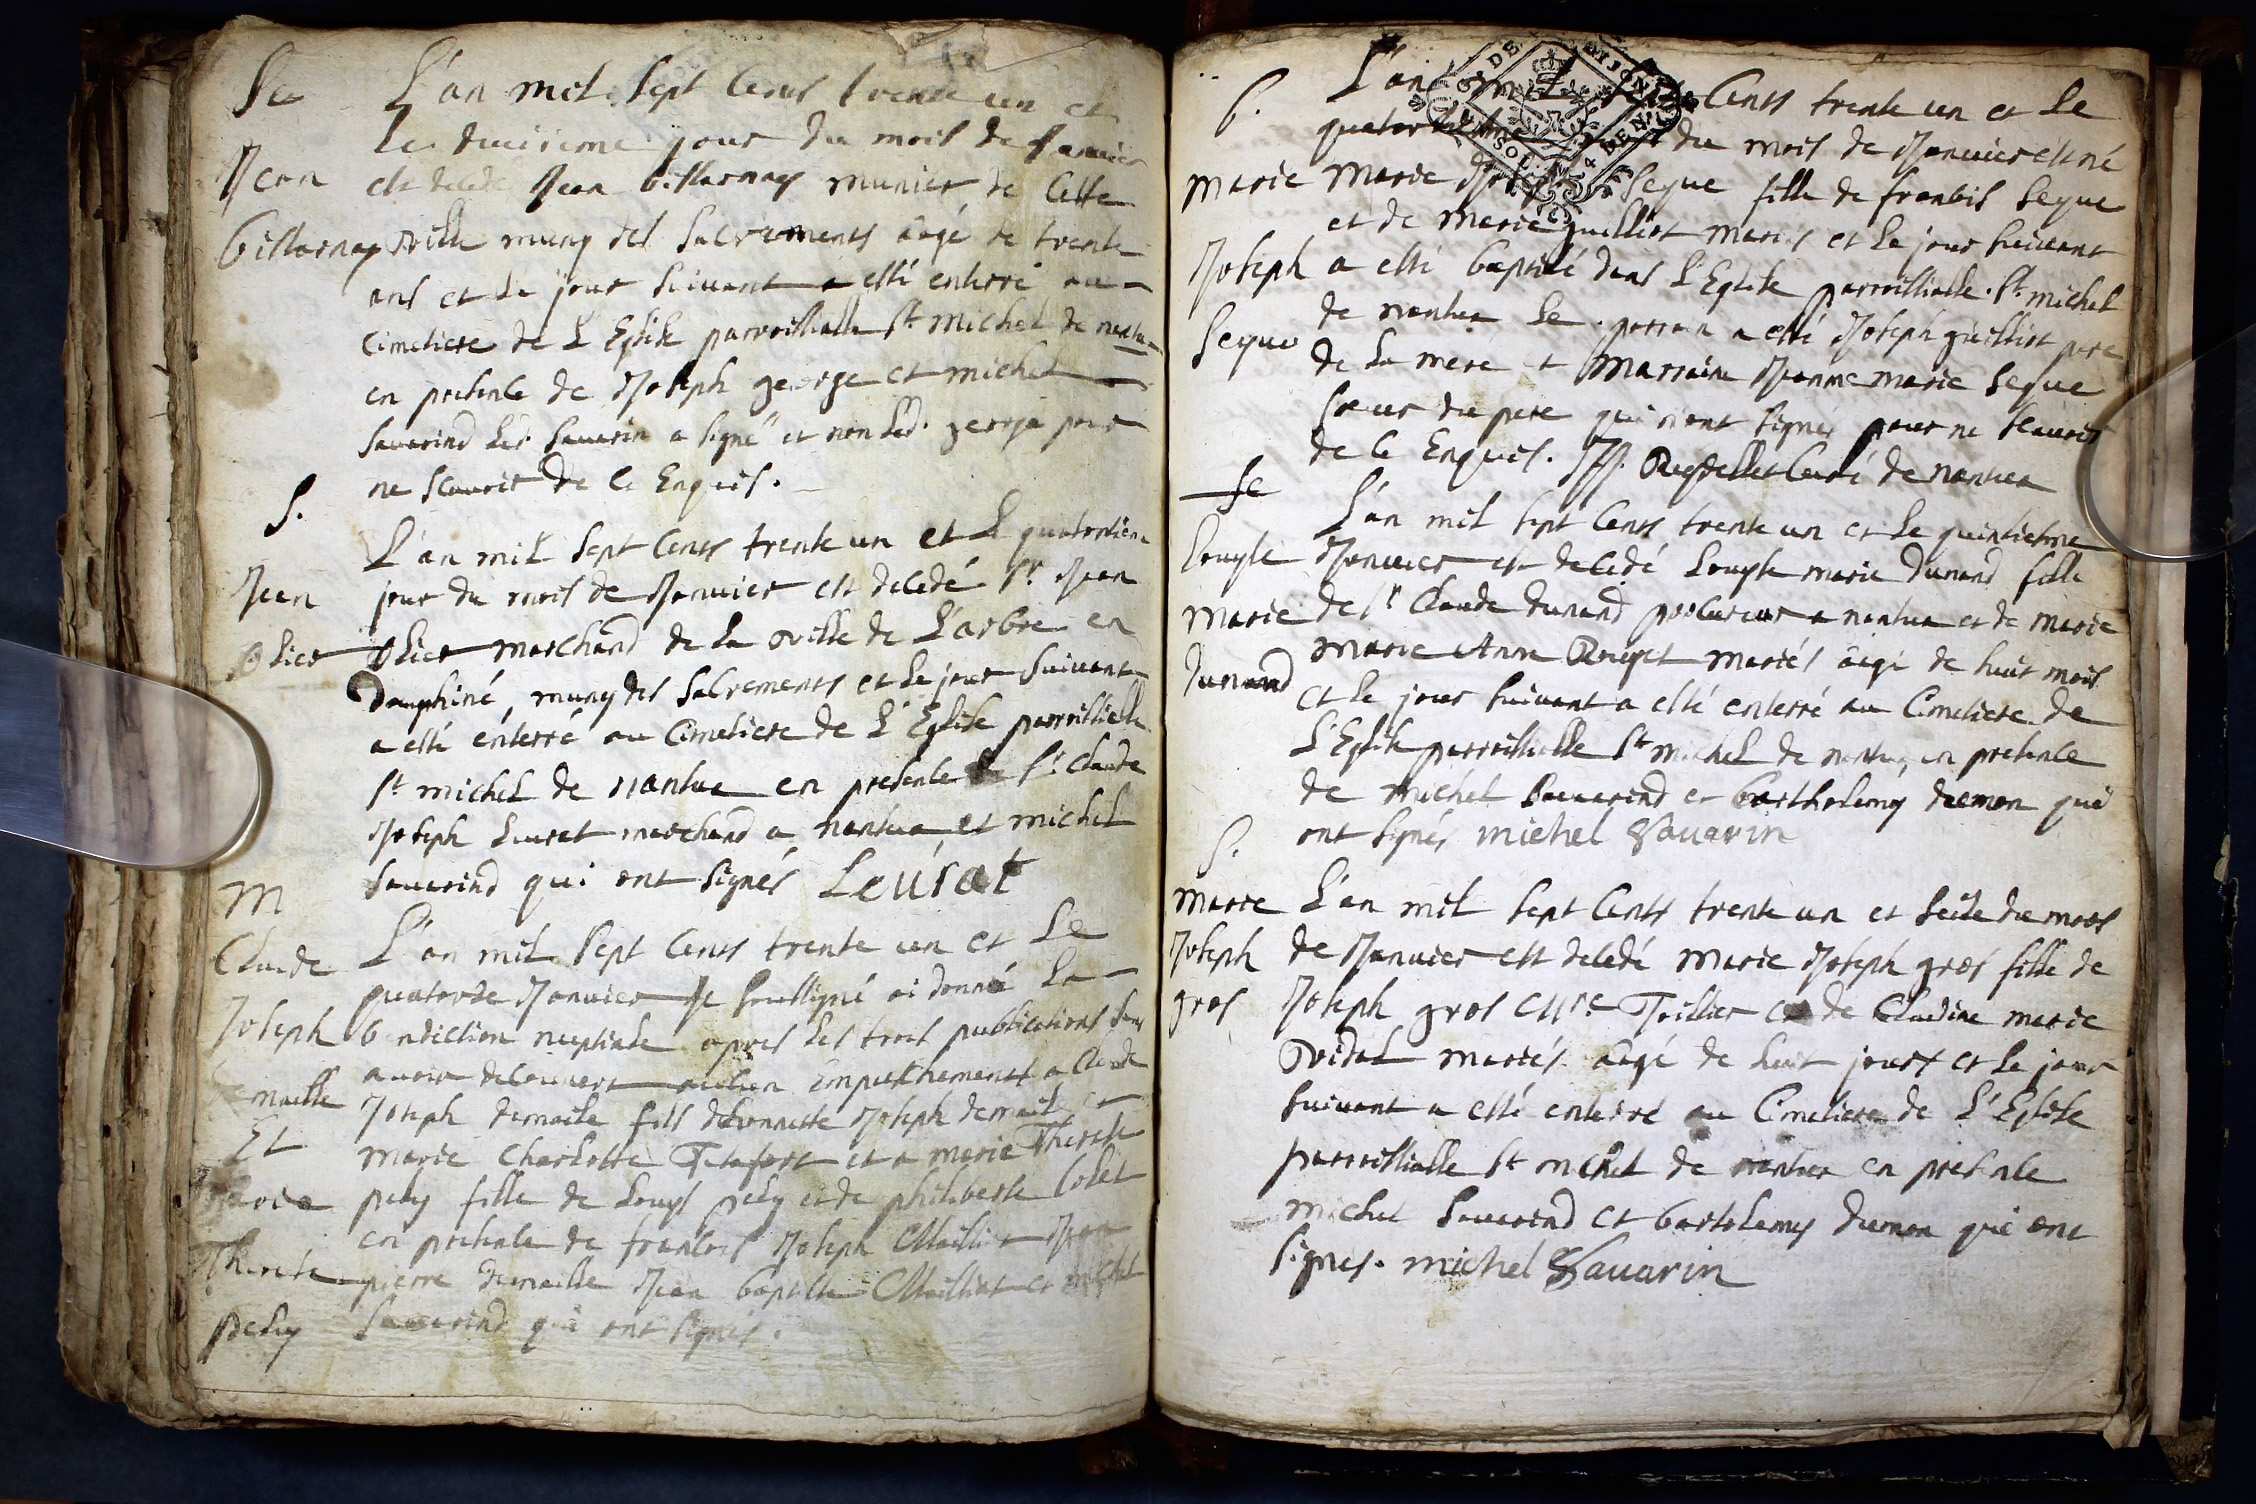 Se
L'an mil Sept Cents trente un et
le diecieme jour du mois de Janvier
Jean
est decedé Jean billarnay munier de Cette
billarnay
ville muny des Sacrements aagé de trente
ans et le jour Suivant a esté enterré au
Cimetiere de L'Eglise parroissialle St michel de nantua
en presence de Joseph george et michel
Sauarind led. Sauarin a signé et non led. george pour
ne scauoir de Ce Enquis.
S.
L'an mil Sept Cents trente un et Le quatorsieme
Jean
jour du mois de Janvier est decedé Sr Jean
Olier
Olier marchand de La ville de L'arbre en
Dauphiné, muny des Sacrements et le jour Suivant
a esté enterré au Cimetiere de L'Eglise parroissialle
St michel de nantua en presence de Sr Claude
Joseph Leurat marchand a nantua, et michel
Sauarind qui ont Signés Leurat
m
Claude
L'an mil Sept Cents trente un et Le
quatorze Janvier Je soussigné ai donné La
Joseph
benediction nuptiale apres les trois publications sans
avoir decouvert aucun Empeschement a Claude
maille
Joseph demaille fils d'honneste Joseph demaille et
Et
marie Charlotte et a marie Therese
marie
pely fille de Louys pely et de philiberte Colet
en presence de francois Joseph Maillier Jean
Therese
pierre demaille Jean baptiste Maillat et michel
pely
Sauarind qui ont Signés.
b.
L'an mil Sept Cents trente un et Le
quatorsieme jour du mois de Janvier est né
marie
marie Joseph Seque fille de francois Seque
et de marie guilliot mariés et le jour suivant
Joseph
a esté baptisé dans L'Eglise parroissialle St. michel
de nantua Le parrain a esté Joseph guilliot pere
Seque
de La mere et marraine Jeanne marie Seque
Soeur du pere qui n'ont Signés pour ne scauoir
de Ce Enquis. Curé de nantua
Se
L'an mil sept Cents trente un et Le quinsiesme
Louyse
Janvier est decedé Louyse marie Dunand fille
marie
de Sr Claude Dunand procureur a nantua et de marie
Dunand
marie Anne mariés aagé de huit mois
et Le jour suivant a esté enterré au Cimetiere de
L'Eglise parroissialle St michel de nantua, en presence
de michel Sauarind et barthelemy dumon qui
ont signés michel Sauarin
S.
marie
L'an mil Sept Cents trente un et seise du mois
Joseph
de Janvier est decedé marie Joseph gros fille de
gros
Joseph gros Me Toillier et de Claudine marie
Vidal mariés aagé de huit jours et Le jour
suivant a esté enterré au Cimetiere de L'Eglise
parroissialle St michel de nantua en presence
michel Sauarind et bartolemy dumon qui ont
signés. michel Sauarin